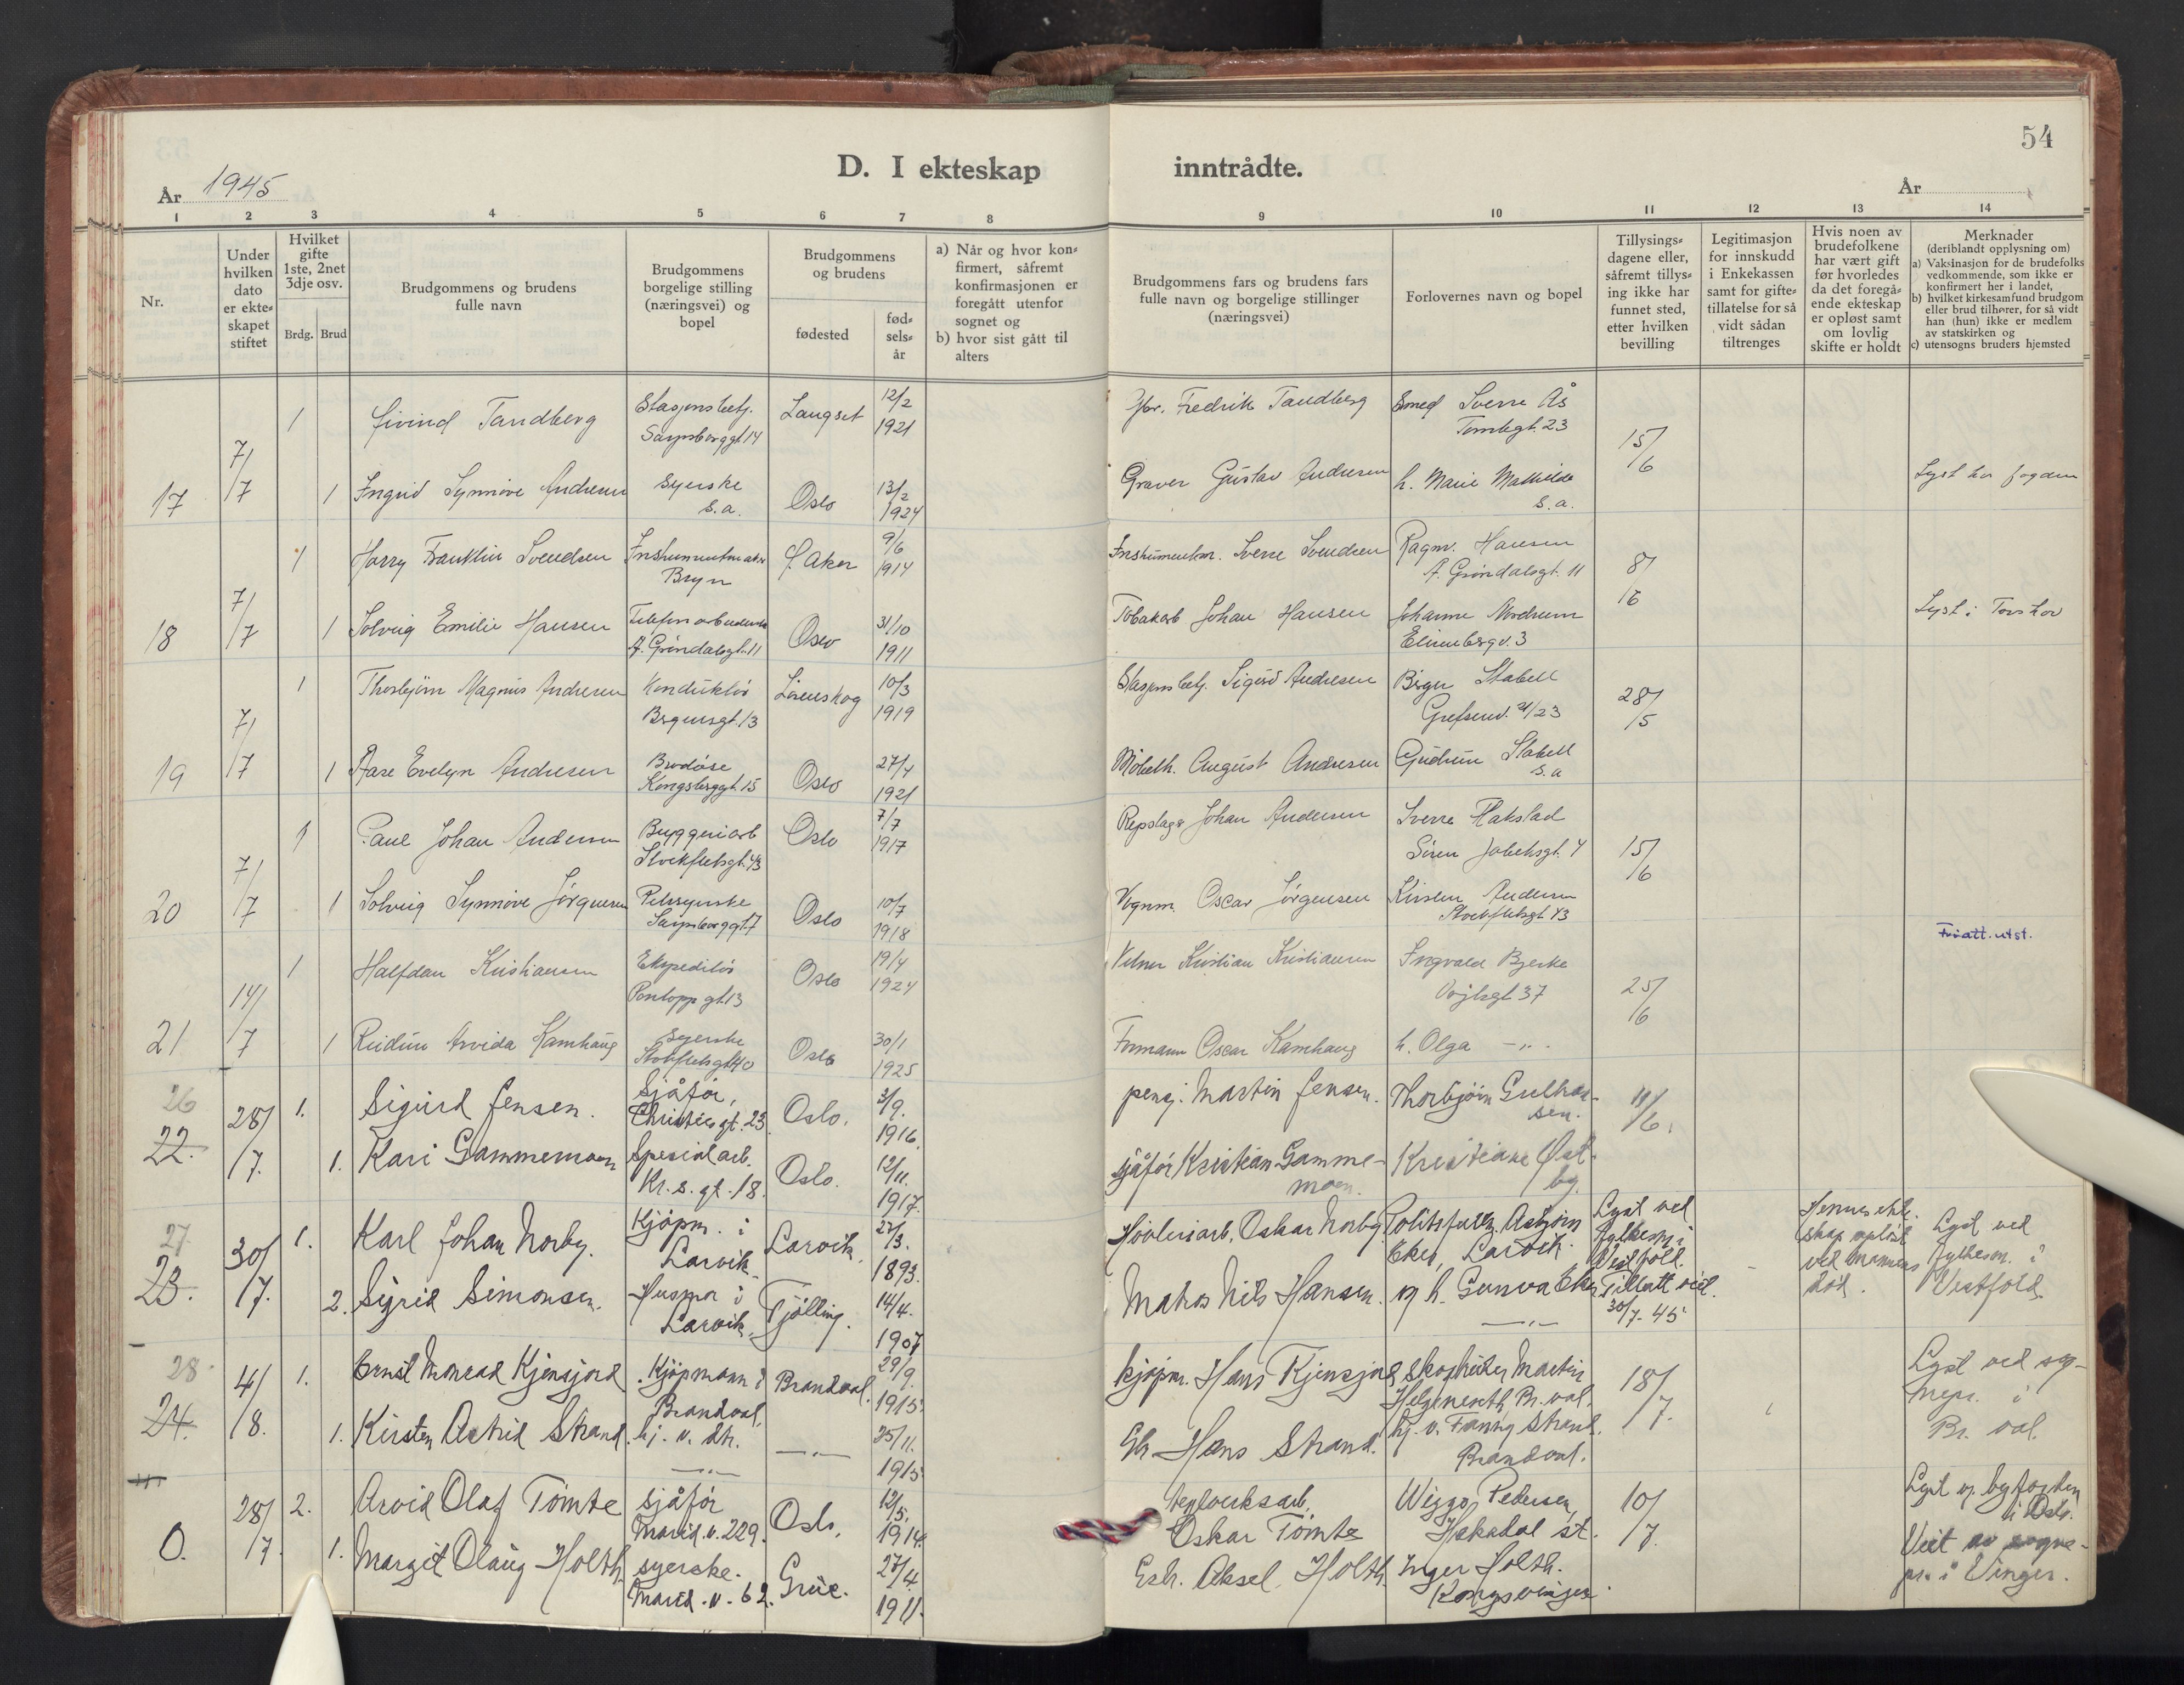 54
År 1945
D. I ekteskap inntrådte.
År
1 2 3 4 5 6 7 8 9 10 11 12 13 14
Nr.
Under hvilken dato er ekte= skapet stiftet
Hvilket gifte 1ste, 2net 3dje osv.
Brdg. Brud
Brudgommens og brudens fulle navn
Brudgommens borgelige stilling (næringsvei) og bopel
Brudgommens og brudens
fødested
fød= sels= år
a) Når og hvor kon= firmert, såfremt konfirmasjonen er foregått utenfor sognet og
b) hvor sist gått til alters
Brudgommens fars og brudens fars fulle navn og borgelige stillinger (næringsvei)
Forlovernes navn og bopel
Tillysings= dagene eller, såfremt tillys= ing ikke har funnet sted, etter hvilken bevilling
Legitimasjon for innskudd i Enkekassen samt for gifte= tillatelse for så vidt sådan tiltrenges
Hvis noen av brudefolkene har vært gift før hvorledes da det foregå= ende ekteskap er opløst samt om lovlig skifte er holdt
Merknader (deriblandt opplysning om)
a) Vaksinasjon for de brudefolks vedkommende, som ikke er konfirmert her i landet,
b) hvilket kirkesamfund brudgom eller brud tilhører, for så vidt han (hun) ikke er medlem av statskirken og
c) utensogns bruders hjemsted
17 7/7
1 Eivind Tandberg Stasjonsbetj. Sarpsborggt 14 Langset 12/2 1921 Fredrik Tandberg Smed Sverre Ås 23 15/6
1 Ingrid Synnøve Andresen Syerske s.a. Oslo 13/2 1924 Graver Gustav Andresen h. Marie Mathilde s.a. Lyst hos fogden
18 7/7
1 Harry Franklin Svendsen Instrumentmaker Bryn Ø. Aker 9/6 1914 Instrumentm. Sverre Svendsen Ragnv. Hansen A. Grøndalsgt. 11 8/6
1 Solveig Emilie Hansen A. Grøndalsgt. 11 Oslo 31/10 1911 Tobakarb Johan Hansen Johanne Nordrum 3 Lyst i Torshov
19 7/7
1 Thorbjørn Magnus Andresen Konduktør 13 Lørenskog 10/3 1919 Stasjonsbetj. Sigurd Andresen Birger Stabell Grefsenv. 23 28/5
1 Aase Evelyn Andresen Brodøse Kongsberggt. 15 Oslo 27/4 1921 Møbelh. August Andresen Gudrun Stabell s.a
20 7/7
1 Paul Johan Andersen Bryggeriarb Stockflethsgt. 43 Oslo 7/7 1917 Repslager Johan Andersen Sverre Hakstad Søren Jaabeksgt. 4 15/6
1 Solveig Synnøve Jørgensen Pelssyerske Sarpsborggt 7 Oslo 10/7 1918 Vognm. Oscar Jørgensen Kirsten Andersen Stockflethsgt 43
21 14/7
1 Halfdan Kristiansen Ekspeditør Pontopp gt. 13 Oslo 19/4 1924 Kristian Kristiansen Ingvald Bjerke 37 25/6 att. utst.
1 Reidun Arvida Kamhaug Syerske Stokflethsgt 40 Oslo 30/1 1925 Formann Oscar Kamhaug h. Olga -"-
26
22. 28/7.
1. Sigurd Jensen. Sjåfør, Christies gt. 23. Oslo. 3/9. 1916. pensj. Martin Jensen. Thorbjørn Gulbransen. 11/6.
1. Kari Gammemoen Spesialarb. Kr. s. gt. 18. Oslo. 12/11. 1917. sjåfør Kristian Gammemoen. Kristiane Østby.
27
23. 30/7.
1. Karl Johan Norby. Kjøpm. i Larvik. Larvik. 27/3. 1893. Høvleriarb. Oskar Norby Politifullm. Asbjørn Eker, Larvik. Lyst ved fylkesm. i Vestfold. Hennes ekteskap opløst ved mannens død. Lyst ved fylkesm. i Vestfold.
2. Sigrid Simonsen. Husmor i Larvik. Tjølling. 14/4. 1907 Matros Nils Hansen. og h. Gunva Eker -"- Tillatt ved. 30/7-45
28
24. 4/8.
1. Ernst Monrad Kjensjord Kjøpmann i Brandval. Brandval. 29/9. 1915. kjøpm. Hans Kjensjord, Martin Helgeneseth, Br. val. 18/7. Lyst ved sognepr. i Br. val.
1. Kirsten Astrid Strand. hj. v. dtr. -"- -"- 25/11. 1915. Gb Hans Strand. hj. v. Fanny Strand. Brandval.
0. 28/7.
2. Arvid Olaf Tømte sjåfør Marid. v. 229. Oslo. 12/5. 1914. teglverksarb. Oskar Tømte Wiggo Pedersen, Hakadal st. 10/7. Lyst v. byfogden i Oslo.
1. Margit Olaug Holth. syerske. Marid. v. 62. Grue. 27/4. 1911. Gsb. Aksel Holth. Inger Holth. Kongsvinger. Viet av sognepr. i Vinger.